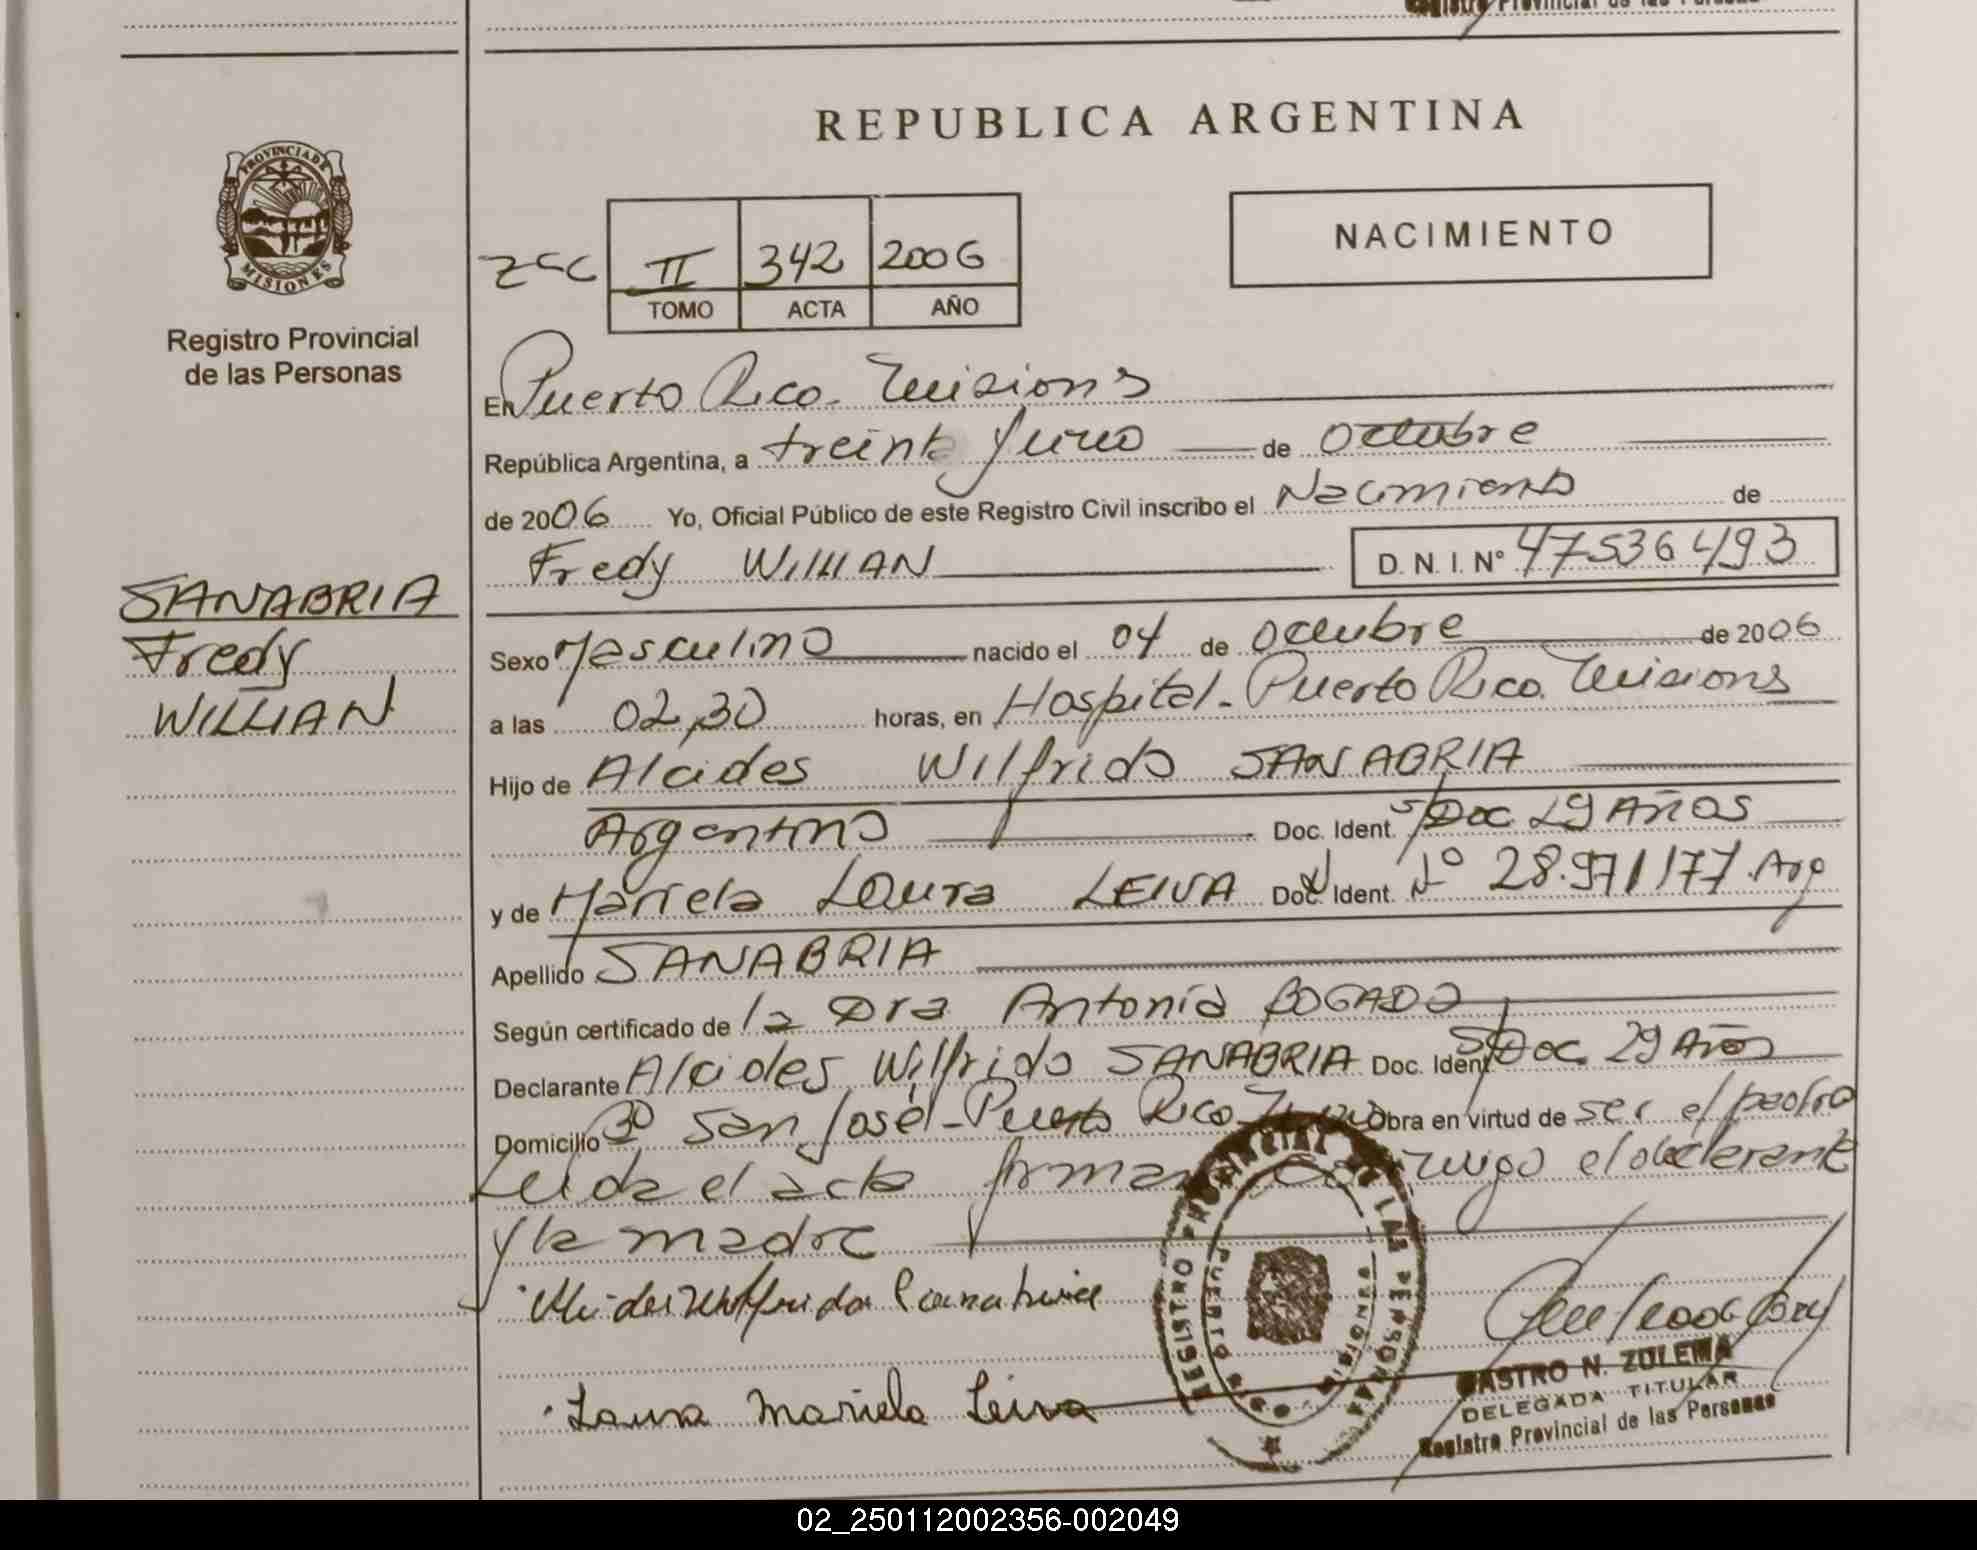 Registro Provincial de las Personas
REPUBLICA ARGENTINA
PROVINCIA DE
MISIONES
Registro Provincial
de las Personas
NACIMIENTO
II 342 2006
TOMO ACTA AÑO
En Puerto Rico. Misiones
República Argentina, a treinta y uno de octubre
de 2006 Yo, Oficial Público de este Registro Civil inscribo el Nacimiento de
Fredy WILLIAN D. N. I. Nº 47536493
SANABRIA
Fredy
WILLIAN
Sexo Masculino nacido el 04 de octubre de 2006
a las 02,30 horas, en Hospital - Puerto Rico. Misiones
Hijo de Alcides Wilfrido SANABRIA
Argentino Doc. Ident. s/Doc 29 AÑOS
y de Mariela Laura LEIVA Doc. Ident. Nº 28.971177. Arg
Apellido SANABRIA
Según certificado de la Dra Antonia BOGADO
Declarante Alcides Wilfrido SANABRIA Doc. Ident. S/Doc. 29 Años
Domicilio Bº San José - Puerto Rico Obra en virtud de ser el padre
Leida el acta firman conmigo el declarante
y la madre
Alcides Wilfrido Sanabria
Laura Mariela Leiva
REGISTRO PROVINCIAL DE LAS PERSONAS
PUERTO RICO MISIONES
CASTRO N. ZULEMA
DELEGADA TITULAR
Registro Provincial de las Personas
02_250112002356-002049